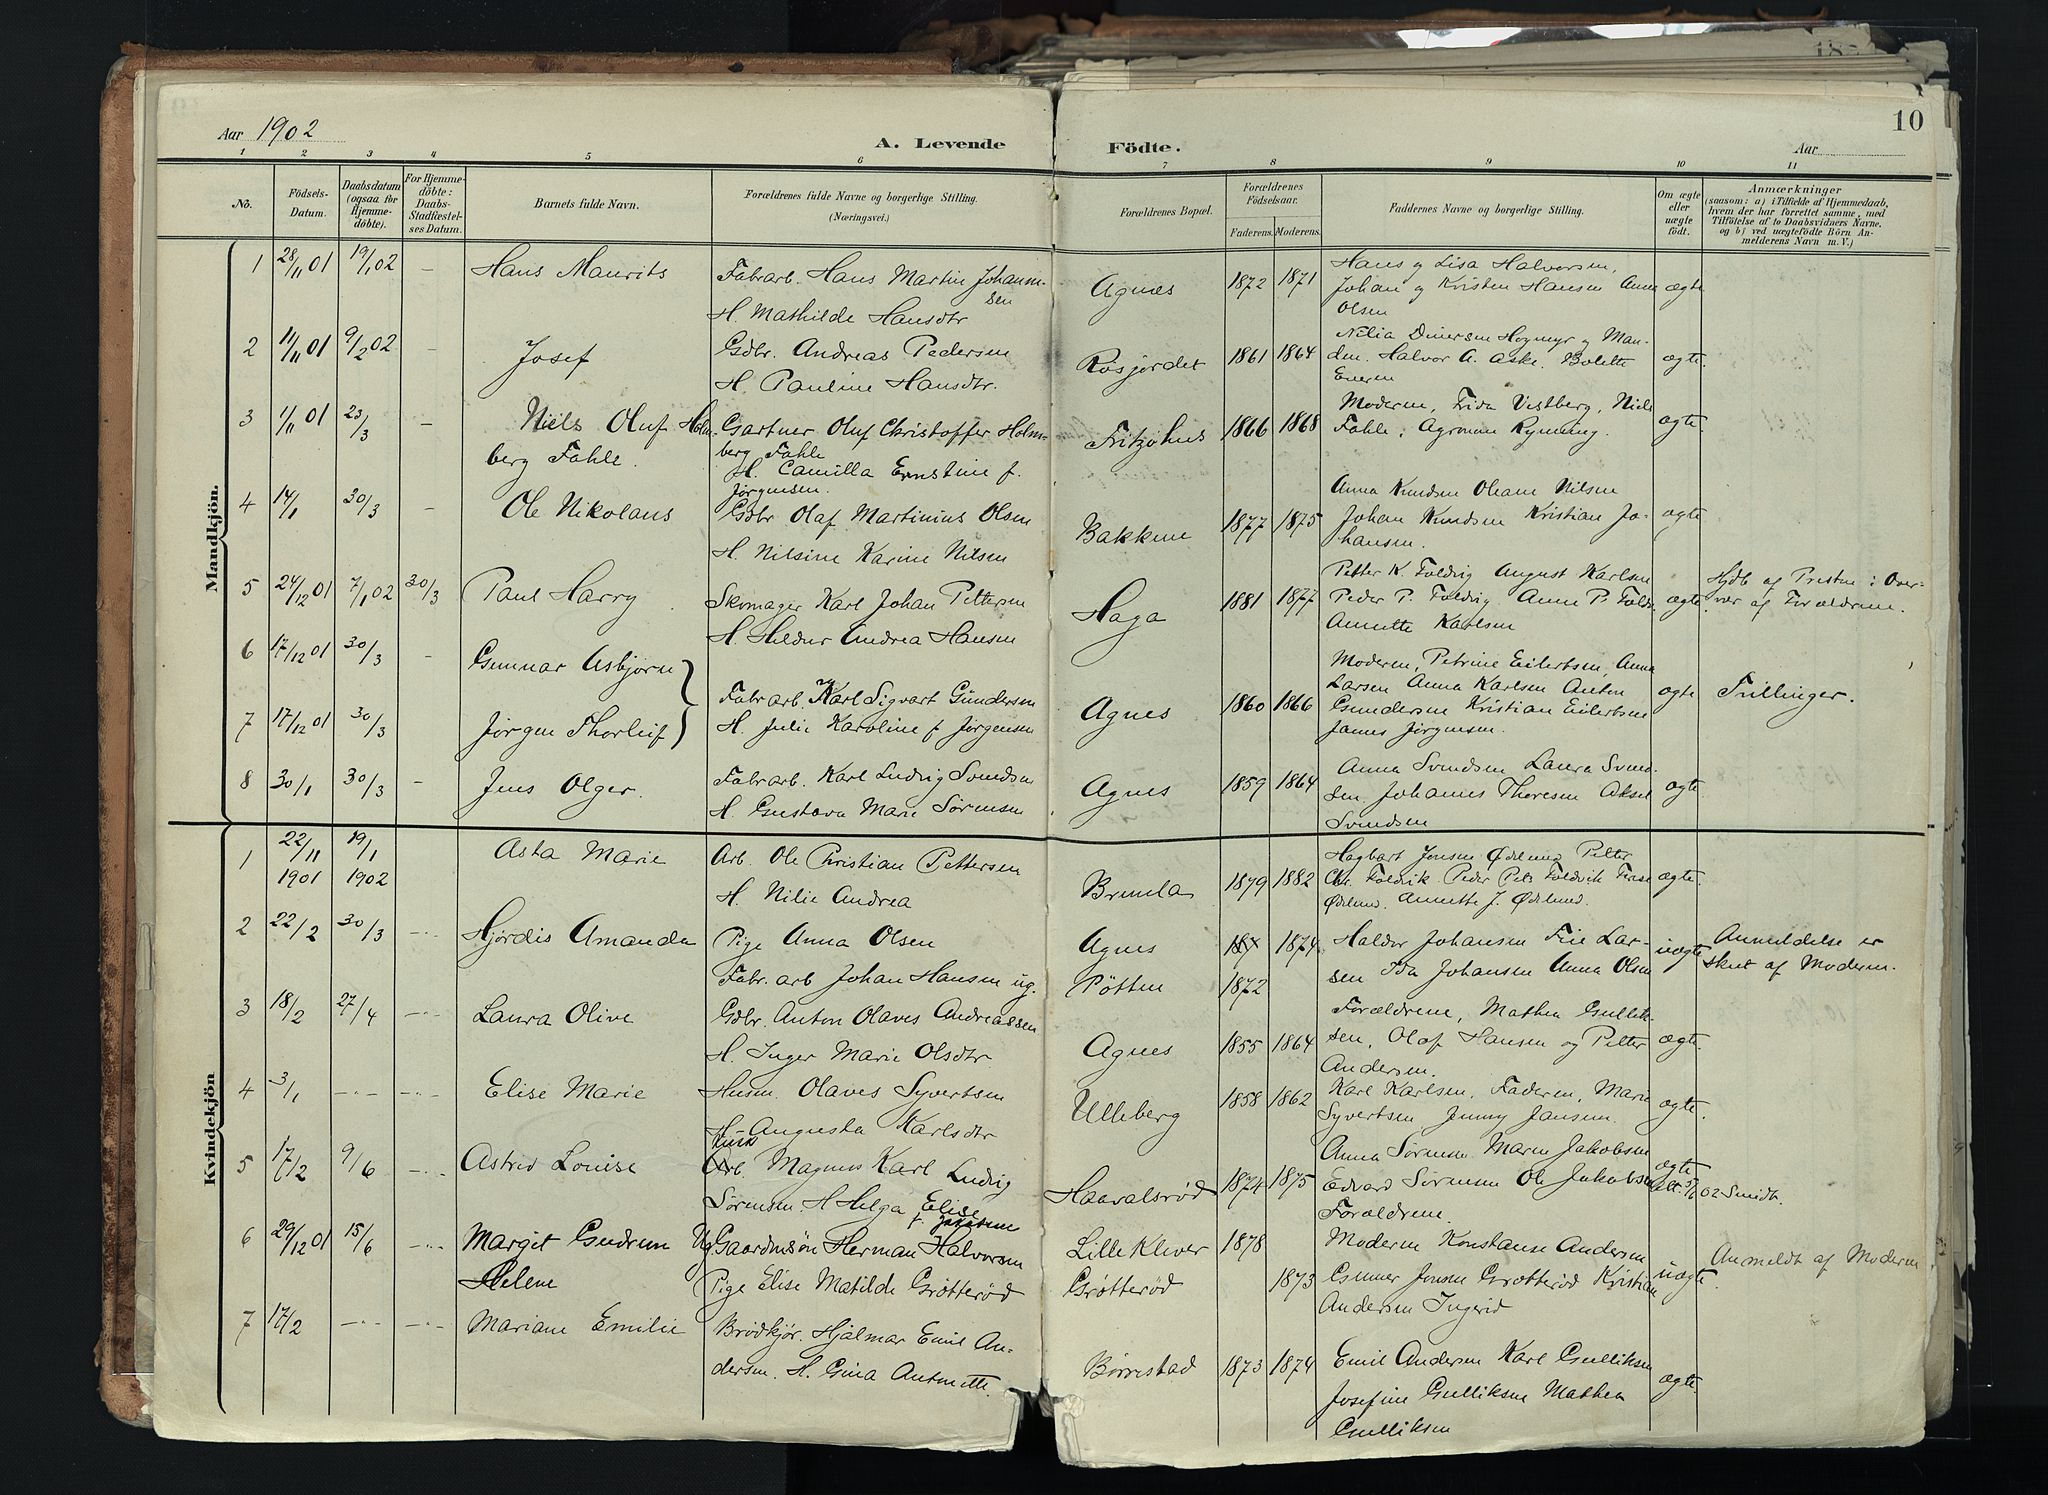 Aar 1902
A. Levende Födte.
Aar
10
1 2 3 4 5 6 7 8 9 10 11
No.
Födsels-Datum.
Daabsdatum (ogsaa for Hjemme-döbte).
For Hjemme-döbte: Daabs-Stadfæstel-ses Datum.
Barnets fulde Navn.
Forældrenes fulde Navne og borgerlige Stilling.
(Næringsvei.)
Forældrenes Bopæl.
Forældrenes Födselsaar.
Faderens. Moderens.
Faddernes Navne og borgerlige Stilling.
Om ægte eller uægte födt.
Anmærkninger
(saasom: a) i Tilfælde af Hjemmedaab,
hvem der har forrettet samme, med
Tilföielse af to Daabsvidners Navne,
og b) ved uægtefödte Börn An-
melderens Navn m. V.)
Mandkjön.
1 28/11 01 19/1 02 - Hans Maurits
Fabrarb. Hans Martin Johann-
sen
H. Mathilde Hansdtr
Agnes 1872 1871
Hans og Lisa Halvorsen,
Johan og Kristen Hansen Anna
Olsen
ægte
2 11/11 01 9/2 02 - Josef
Gdbr. Andreas Pedersen
H. Pauline Hansdtr.
Rosjordet 1861 1864
Nilia Hogmyr og Man-
den. Halvor A. Aske. Bolette
ægte.
3 1/11 01 23/3 - Niels Oluf Holm-
berg Fahle.
Gartner Oluf Christoffer Holm-
berg Fahle
H. Camilla Ernstine f.
Jørgensen.
Fritzøhus 1866 1868
Moderen, Frida Vestberg, Niels
Fahle, Agronom
ægte.
4 14/1 30/3 - Ole Nikolaus
Gdbr Olaf Martinius Olsen
H. Nilsine Karine Nilsen
Bakkene 1877 1875
Anna Knudsen Oleane Nilsen
Johan Knudsen Kristian Jo-
hansen.
ægte
5 24/12 01 7/1 02 30/3 Paul Harry
Skomager Karl Johan Pettersen
H. Hildur Andrea Hansen
Haga 1881 1877
Petter K. Foldvig August Karlsen
Peder P. Foldvig. Anne P. Foldv.
Annette Karlsen
ægte.
Hjdb af Presten i Over-
vær af Forældrene.
6 17/12 01 30/3 - Gunnar Asbjørn
7 17/12 01 30/3 Jørgen Thorleif
Fabrarb. Karl Sigvart Gundersen
H. Julie Karoline f Jørgensen
Agnes 1860 1866
Moderen, Petrine Eilertsen, Anna
Larsen Anna Karlsen Anton
Gundersen Kristian Eilertsen
James Jørgensen.
ægte
Tvillinger.
8 30/1 30/3 - Jens Olger.
Fabrarb. Karl Ludvig Svendsen
H. Gustava Marie Sørensen
Agnes 1859 1864
Anna Svendsen Laura Svend-
sen. Johannes Thoresen Aksel
Svendsen
ægte.
Kvindekjön
1 22/11 1901 19/1 1902 Asta Marie
Arb. Ole Christian Pettersen
H. Nilie Andrea
Brunla 1879 1882
Hagbart Jensen Ødelund Petter
Chr. Foldvik. Peder Foldvik
Ødelund. Annette J. Ødelund.
ægte.
2 22/2 30/3 -"- Hjørdis Amanda
Pige Anna Olsen
Fabr. arb Johan Hansen ug.
Agnes 1874
Pøtten 1872
Haldor Johansen Lar-
sen Ida Johansen Anna Olsen
uægte
Anmeldelse er
sket af Moderen.
3 18/2 27/4 -"- Laura Olive
Gdbr. Anton Olaves Andreassen
H. Inger Marie Olsdtr
Agnes 1855 1864
Forældrene, Mathea Gullik-
sen, Olaf Hansen og Petter
Andersen.
ægte.
4 3/1 -"- -"- Elise Marie
Husm. Olaves Syvertsen
H. Augusta Karlsdtr
Ulleberg 1858 1862
Karl Karlsen, Faderen, Marie
Syvertsen Jenny Jansen.
ægte.
5 17/2 9/6 -"- Astrid Louise
Arb. Magnus Karl Ludvig
Sørensen. H Helga Elise
f. Jakobsen
Haavalsrød 1874 1875
Anna Sørensen Maren Jakobsen
Edvard Sørensen Ole Jakobsen
Forældrene.
ægte
02 Smidt.
6 29/12 01 15/6 -"- Margit Gudrun
Helene
Ug Gaardmsøn Herman Halvorsen
Pige Elise Matilde Grøtterød
Lille Kliver 1878
Grøtterød 1873
Moderen Konstanse Andersen
Gunner Jensen Grøtterød Kristian
Andersen Ingerid
uægte.
Anmeldt af Moderen
7 17/2 -"- -"- Mariane Emilie
Brødkjør. Hjalmar Emil An-
dersen. H. Gina Antonette.
Børrestad 1873 1874
Emil Andersen Karl Gulliksen
Josefine Gulliksen Mathea
Gulliksen
ægte.